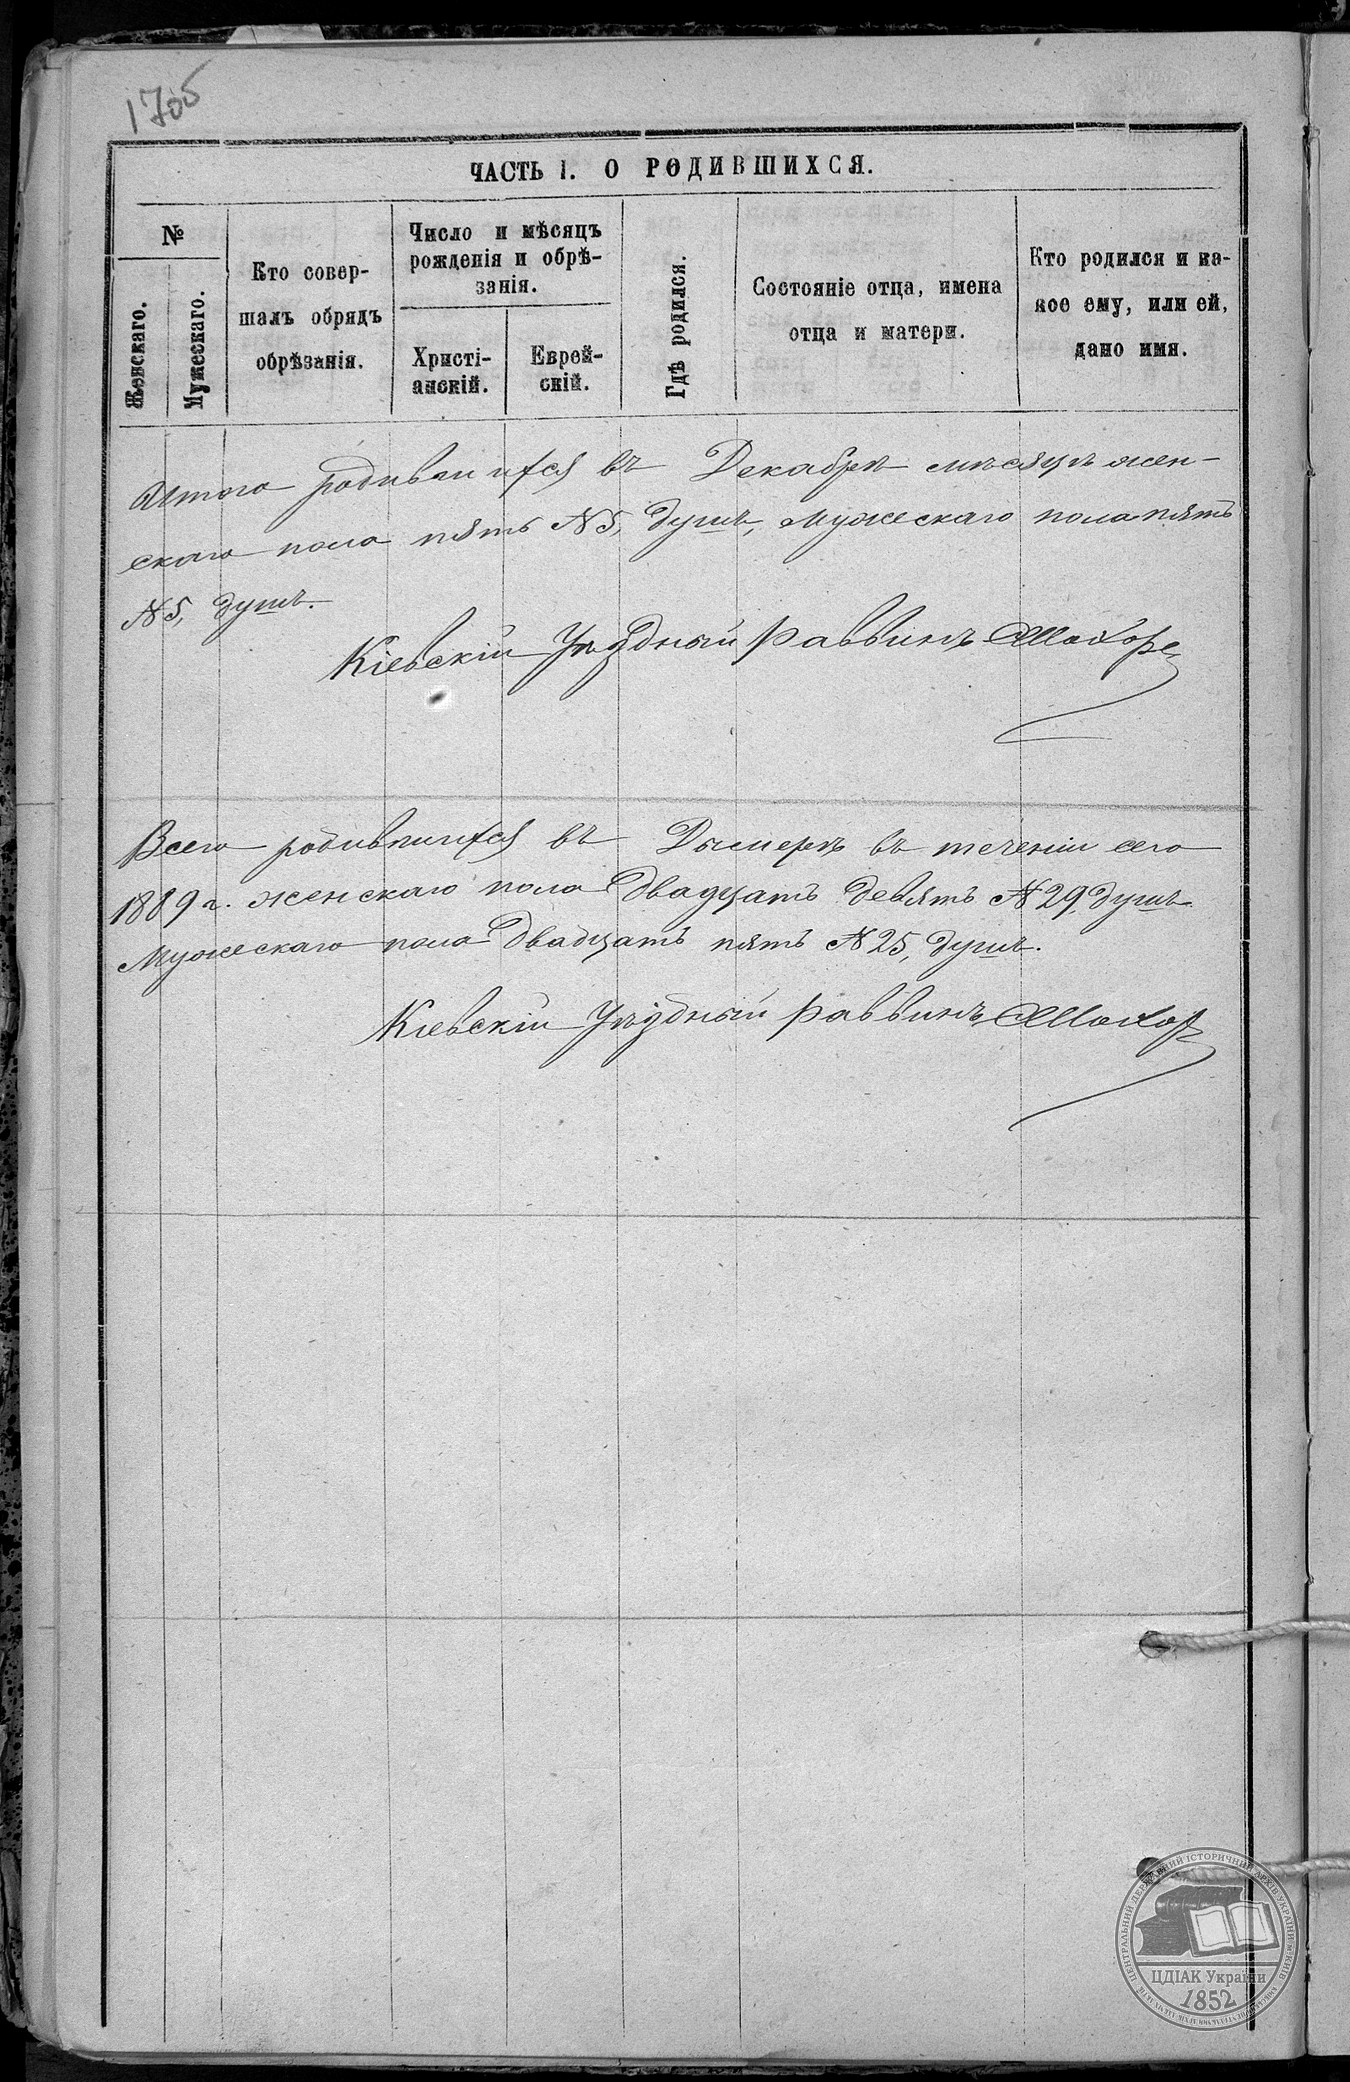 1705
ЧАСТЬ I. О РОДИВШИХСЯ.
№
Женскаго.
Мужескаго.
Кто совер-
шалъ обрядъ
обрѣзанія.
Число и мѣсяцъ
рожденія и обрѣ-
занія.
Христі-
анскій.
Еврей-
скій.
Гдѣ родился.
Состояніе отца, имена
отца и матери.
Кто родился и ка-
кое ему, или ей,
дано имя.
Итого родившихся въ Декабрѣ мѣсяцѣ жен-
скаго пола пять №5, душъ, мужескаго пола пять
№5, душъ.
Кіевскій Уѣздный Раввинъ
Всего родившихся въ Дымерѣ въ теченіи сего
1889 г. женскаго пола двадцать девять №29, душъ
Мужескаго пола двадцать пять №25, душъ.
Кіевскій Уѣздный Раввинъ
ЦЕНТРАЛЬНИЙ ДЕРЖАВНИЙ ІСТОРИЧНИЙ АРХІВ УКРАЇНИ, М. КИЇВ
ЦДІАК України
1852